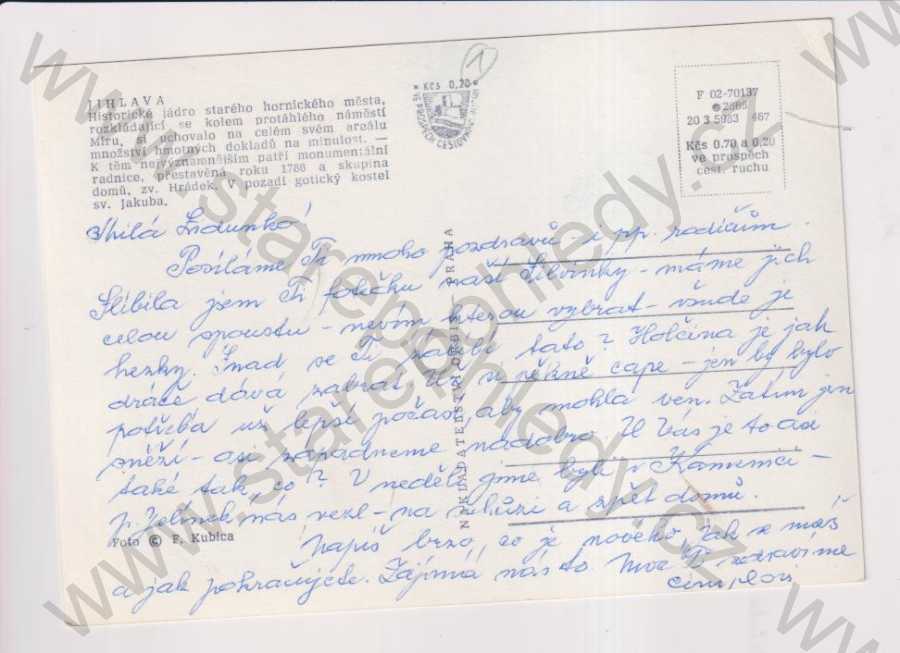 JIHLAVA
Historické jádro starého hornického města,
rozkládající se kolem protáhlého náměstí
Míru, si uchovalo na celém svém areálu
množství hmotných dokladů na minulost. —
K těm nejvýznamnějším patří monumentální
radnice, přestavěná roku 1786 a skupina
domů, zv. Hrádek. V pozadí gotický kostel
sv. Jakuba.
1
* Kčs 0,20 *
F 02-70137
20 3 5983 667
Kčs 0.70 a 0.20
ve prospěch
cest. ruchu
Milá Zdunko!
Posíláme Ti mnoho pozdravů i pp. rodičům.
Slíbila jsem Ti fotečku naší Silvinky - máme jich
celou spoustu - nevím kterou vybrat - všude je
hezky. Snad se Ti zalíbí tato? Holčina je jak
dráče dává zabrat. Už pěkně cape - jen by bylo
potřeba už lepší počasí aby mohla ven. Zatím jen
sněží - asi zapadneme nadobro. U Vás je to asi
také tak, co? V neděli jsme byli v Kamenici -
p. Jelínek nás vezl - na a zpět domů.
Napiš brzo co je nového. Jak se máš
a jak pokračujete. Zajímá nás to. Moc Tě zdravíme
NAKLADATELSTVÍ ORBIS, PRAHA
Foto © F. Kubica
www.starepohledy.cz
www.starepohledy.cz